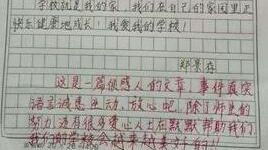 学校就是我的家，我们在自己的家园里正
快乐健康地成长！我爱我的学校！
郑景存
这是一篇很感人的文章，事件真实
语言诚恳生动，放心吧，除了师生的
努力还有很多爱心人士在默默帮助我们
我们的学校会越来越美好的！！